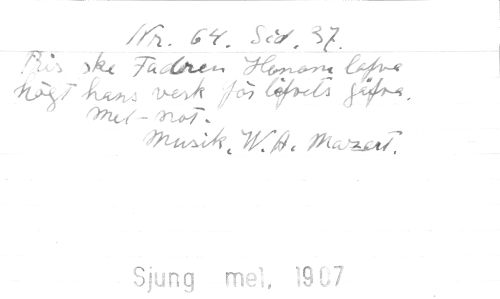 Nr. 64. Sid. 37.
Pris ske Fadren Honom lofva
högt hans verk för lifvets gåfva.
Mel-not.
Musik, W. A. Mozart.
Sjung mel, 1907